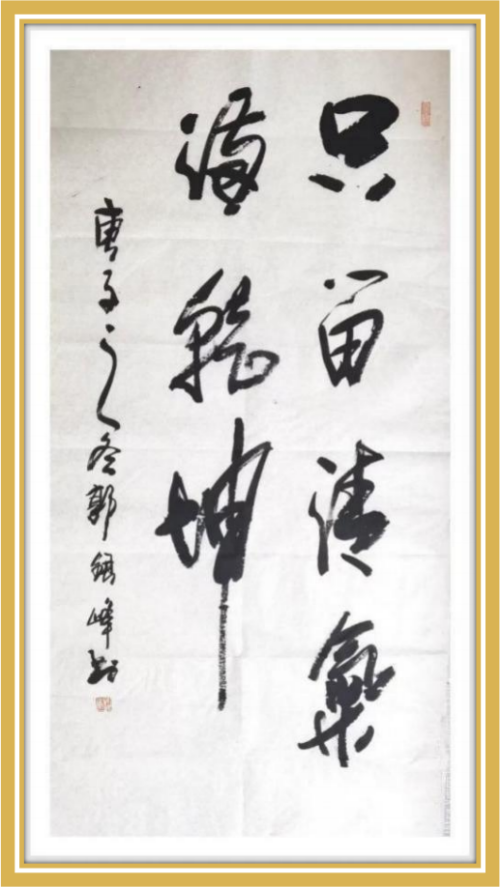 只留清氣
滿乾坤
庚子之冬郭錫峰書